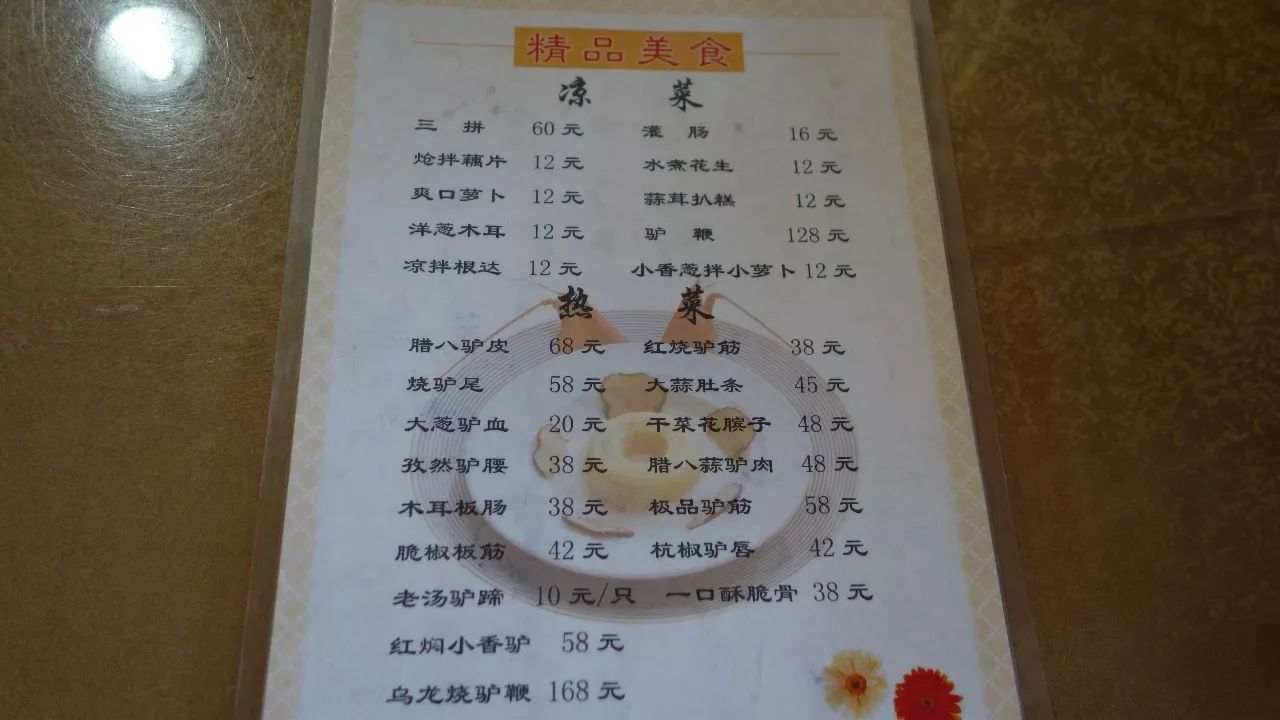 精品美食
凉 菜
三 拼 60 元 灌 肠 16 元
炝拌藕片 12 元 水煮花生 12 元
爽口萝卜 12 元 蒜茸扒糕 12 元
洋葱木耳 12 元 驴 鞭 128 元
凉拌根达 12 元 小香葱拌小萝卜 12 元
热 菜
腊八驴皮 68 元 红烧驴筋 38 元
烧驴尾 58 元 大蒜肚条 45 元
大葱驴血 20 元 干菜花膑子 48 元
孜然驴腰 38 元 腊八蒜驴肉 48 元
木耳板肠 38 元 极品驴筋 58 元
脆椒板筋 42 元 杭椒驴唇 42 元
老汤驴蹄 10 元/只 一口酥脆骨 38 元
红焖小香驴 58 元
乌龙烧驴鞭 168 元